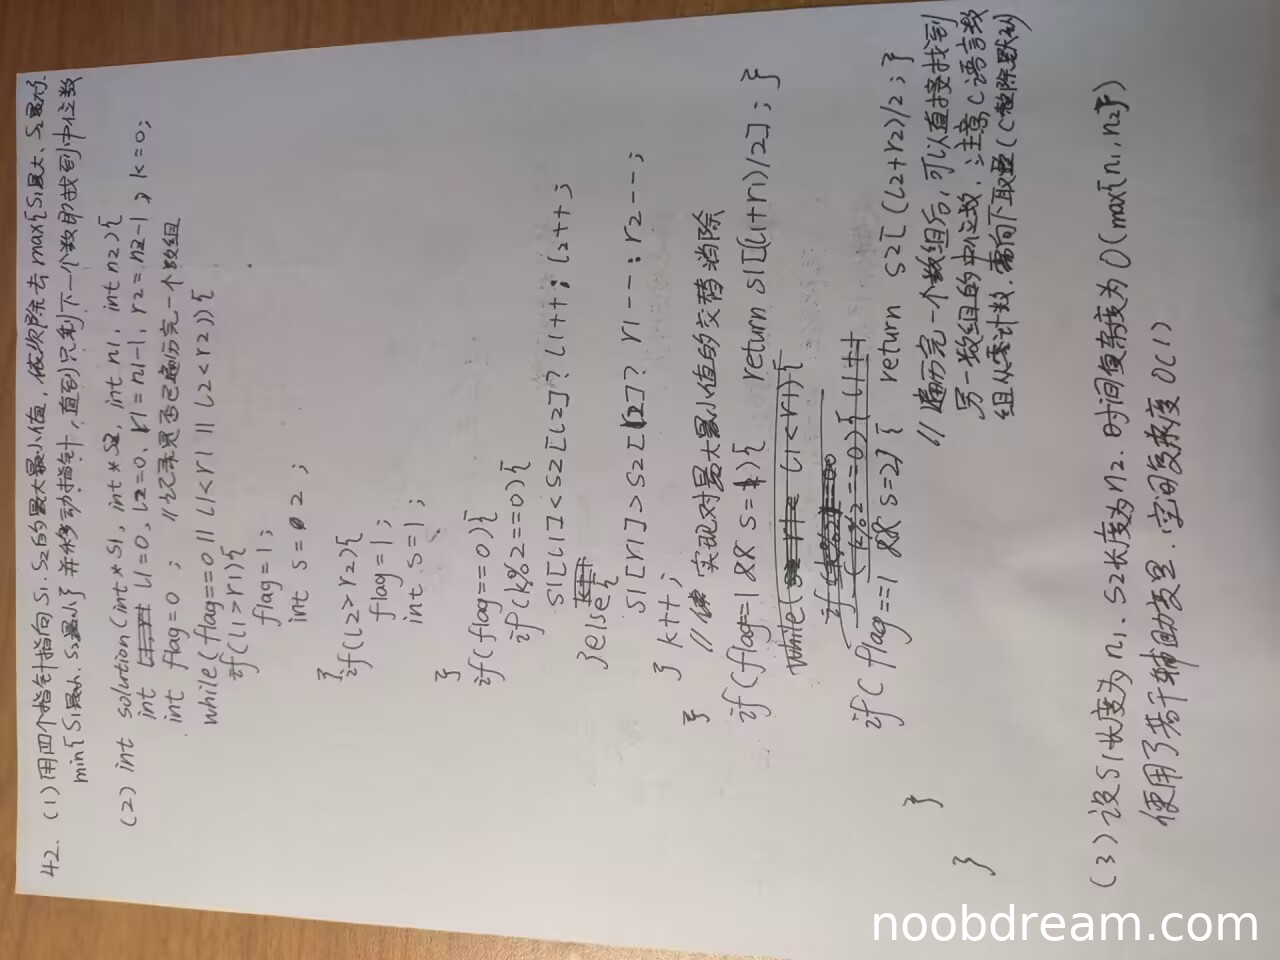 42. (1) 用四个指针指向S1.S2的最大最小值, 依次除去max{S1最大、S2最大}.
min{S1最小、S2最小} 并移动指针, 直到只剩下一个数即找到中位数
(2) int solution(int *S1, int *S2, int n1, int n2){
int l1=0, l2=0, r1=n1-1, r2=n2-1, k=0;
int flag=0; //记录是否已遍历完一个数组
while(flag==0 || l1<r1 || l2<r2)){
if(l1>r1){
flag=1;
int s=2;
}
if(l2>r2){
flag=1;
int s=1;
}
if(flag==0){
if(k%2==0){
S1[l1]<S2[l2]? l1++ : l2++;
}else{
S1[r1]>S2[r2]? r1-- : r2--;
} k++;
// 实现对最大最小值的交替消除
}
if(flag=1 && s=1){ return S1[(l1+r1)/2]; }
while( l1<r1){
if(k%2==0){ l1++
if(flag==1 && s=2){ return S2[(l2+r2)/2; }
//遍历完一个数组后, 可以直接找到
另一数组的中位数, 注意C语言数
组从零计数, 需向下取整(C整除默认)
}
}
(3) 设S1长度为n1. S2长度为n2. 时间复杂度为O(max{n1,n2})
使用了若干辅助变量. 空间复杂度O(1)
noobdream.com